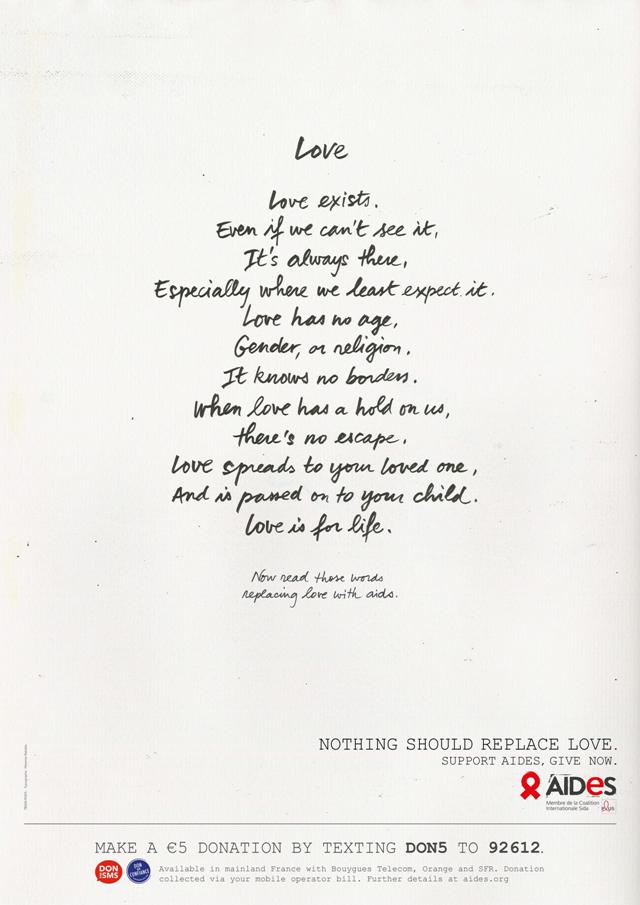 Love
Love exists.
Even if we can't see it,
It's always there,
Especially where we least expect it.
Love has no age,
Gender, or religion.
It knows no borders.
When love has a hold on us,
there's no escape.
Love spreads to your loved one,
And is passed on to your child.
Love is for life.
Now read those words
replacing love with aids.
NOTHING SHOULD REPLACE LOVE.
SUPPORT AIDES, GIVE NOW.
AIDES
Membre de la Coalition
Internationale Sida
PLUS
MAKE A €5 DONATION BY TEXTING DON5 TO 92612.
DON
SMS
DON
CONFIANCE
Available in mainland France with Bouygues Telecom, Orange and SFR. Donation
collected via your mobile operator bill. Further details at aides.org